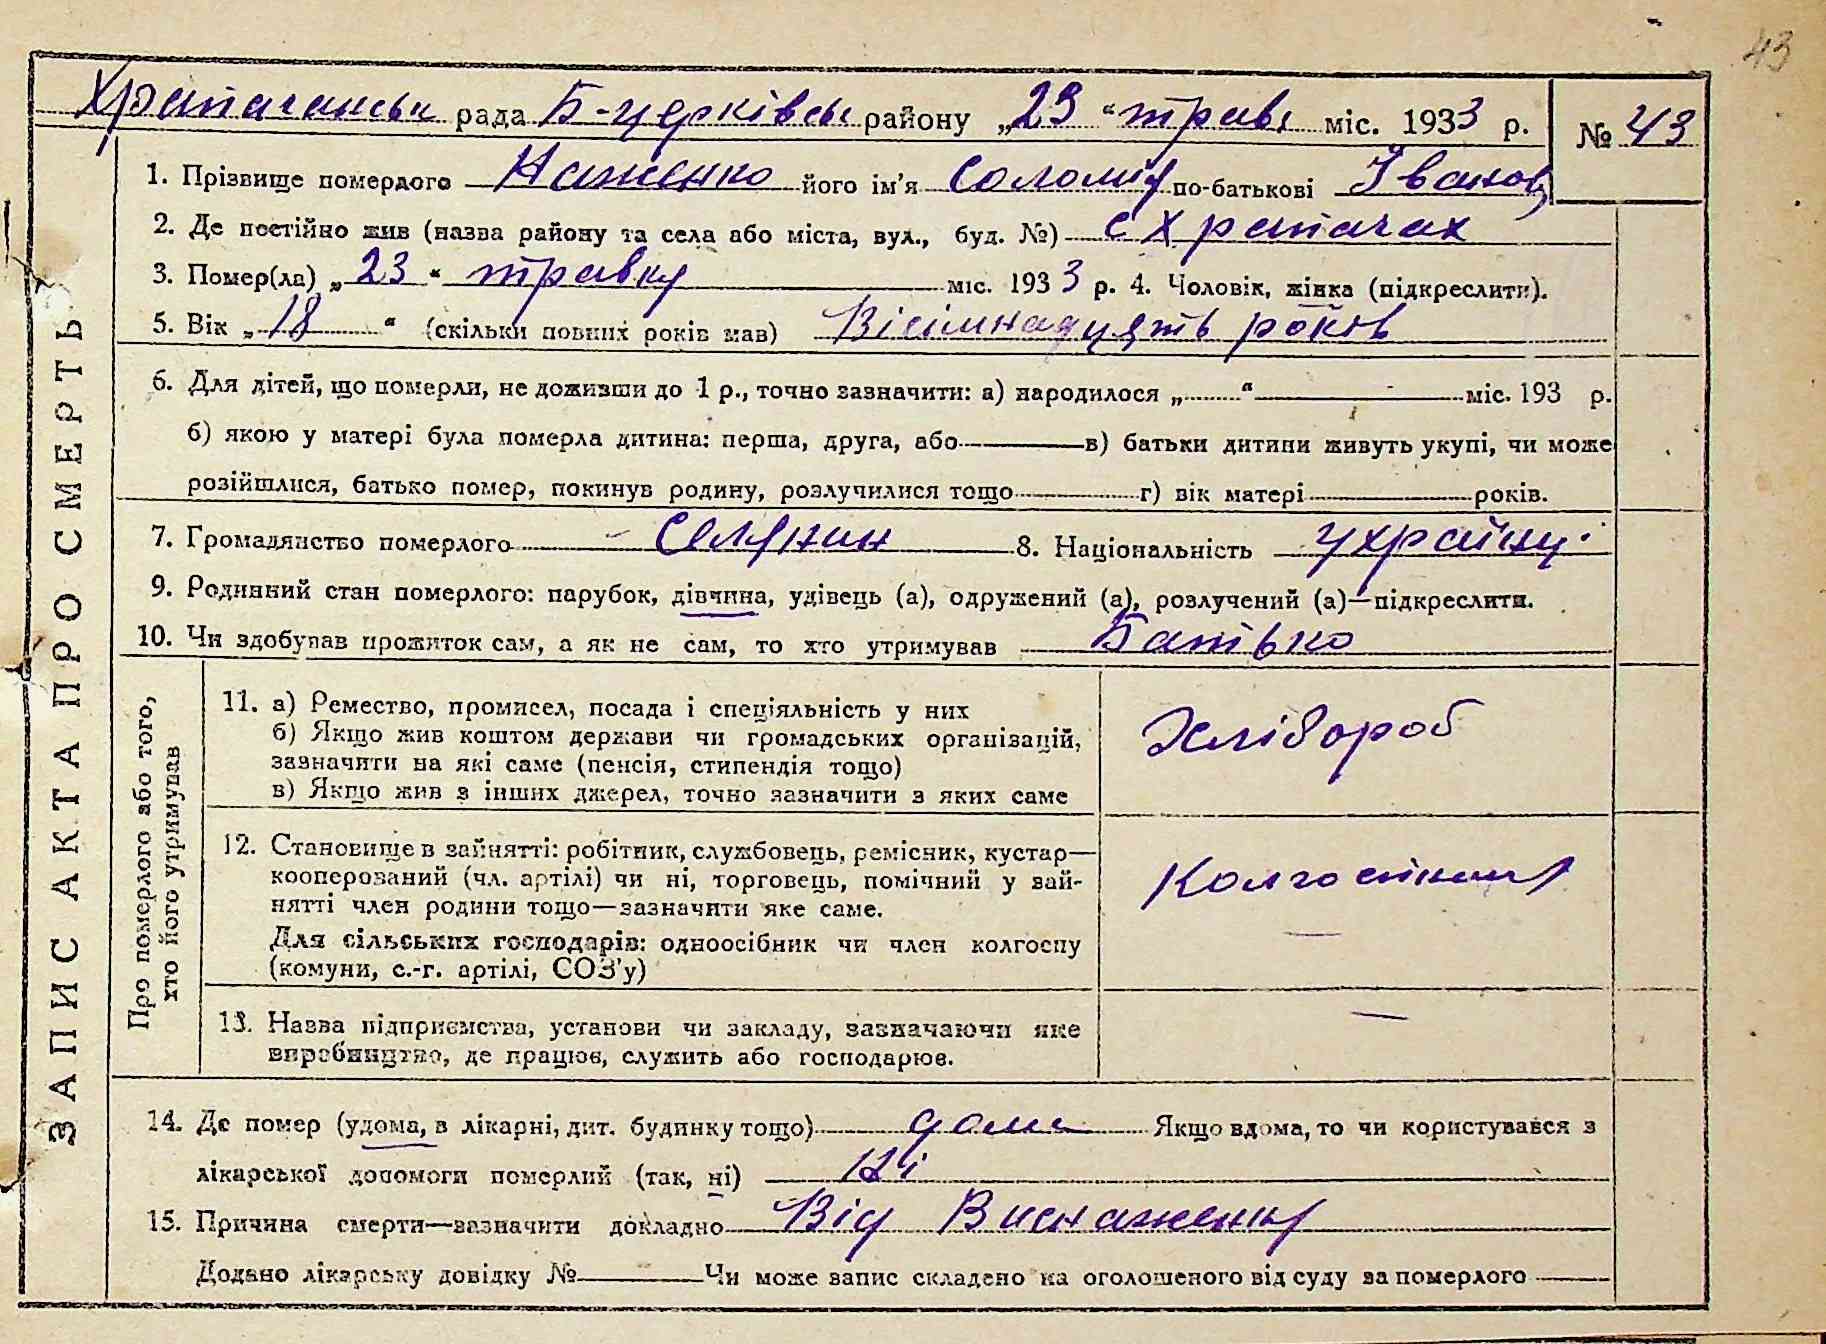 43
Храпачанськ рада Б-церківськ району „23“ травн міс. 1933 р. № 43
1. Прізвище померлого Наженко його ім'я Соломія по-батькові Іванов
2. Де постійно жив (назва району та села або міста, вул., буд. №) с Храпачах
3. Помер(ла) „23“ травня міс. 1933 р. 4. Чоловік, жінка (підкреслити).
5. Вік „18“ (скільки повних років мав) Вісімнадцять років
6. Для дітей, що померли, не доживши до 1 р., точно зазначити: а) народилося „ “ міс. 193 р.
б) якою у матері була померла дитина: перша, друга, або в) батьки дитини живуть укупі, чи може
розійшлися, батько помер, покинув родину, розлучилися тощо г) вік матері років.
7. Громадянство померлого Селянин 8. Національність україці
9. Родинний стан померлого: парубок, дівчина, удівець (а), одружений (а), розлучений (а)—підкреслити.
10. Чи здобував прожиток сам, а як не сам, то хто утримував Батько
11. а) Ремество, промисел, посада і спеціяльність у них
б) Якщо жив коштом держави чи громадських організацій,
зазначити на які саме (пенсія, стипендія тощо)
в) Якщо жив з інших джерел, точно зазначити з яких саме
Хлібороб
12. Становище в зайнятті: робітник, службовець, ремісник, кустар—
кооперований (чл. артілі) чи ні, торговець, помічний у зай-
нятті член родини тощо—зазначити яке саме.
Для сільських господарів: одноосібник чи член колгоспу
(комуни, с.-г. артілі, СОЗ'у)
Колгоспник
13. Назва підприємства, установи чи закладу, зазначаючи яке
виробництво, де працює, служить або господарює.
—
14. Де помер (удома, в лікарні, дит. будинку тощо) дома Якщо вдома, то чи користувався з
лікарської допомоги померлий (так, ні) Ні
15. Причина смерти—зазначити докладно Від Виснаження
Додано лікарську довідку № Чи може запис складено на оголошеного від суду за померлого
ЗАПИС АКТА ПРО СМЕРТЬ
Про померлого або того,
хто його утримував